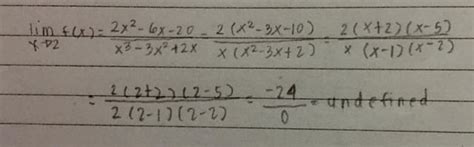 lim f(x) = 2x²-6x-20 / x³-3x²+2x = 2(x²-3x-10) / x(x²-3x+2) = 2(x+2)(x-5) / x(x-1)(x-2)
x→2
= 2(2+2)(2-5) / 2(2-1)(2-2) = -24 / 0 = undefined